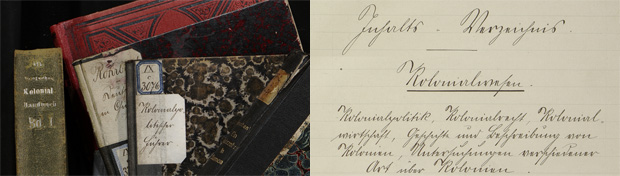 Kolonial
Handbuch
Bd. 1.
IX
c
3076
Kolonialpo-
litischer
Führer
Inhalts-Verzeichnis.
Kolonialwesen.
Kolonialpolitik, Kolonialrecht, Kolonial-
wirtschaft, Geschichte und Beschreibung von
Kolonien, Untersuchungen verschiedener
Art über Kolonien.